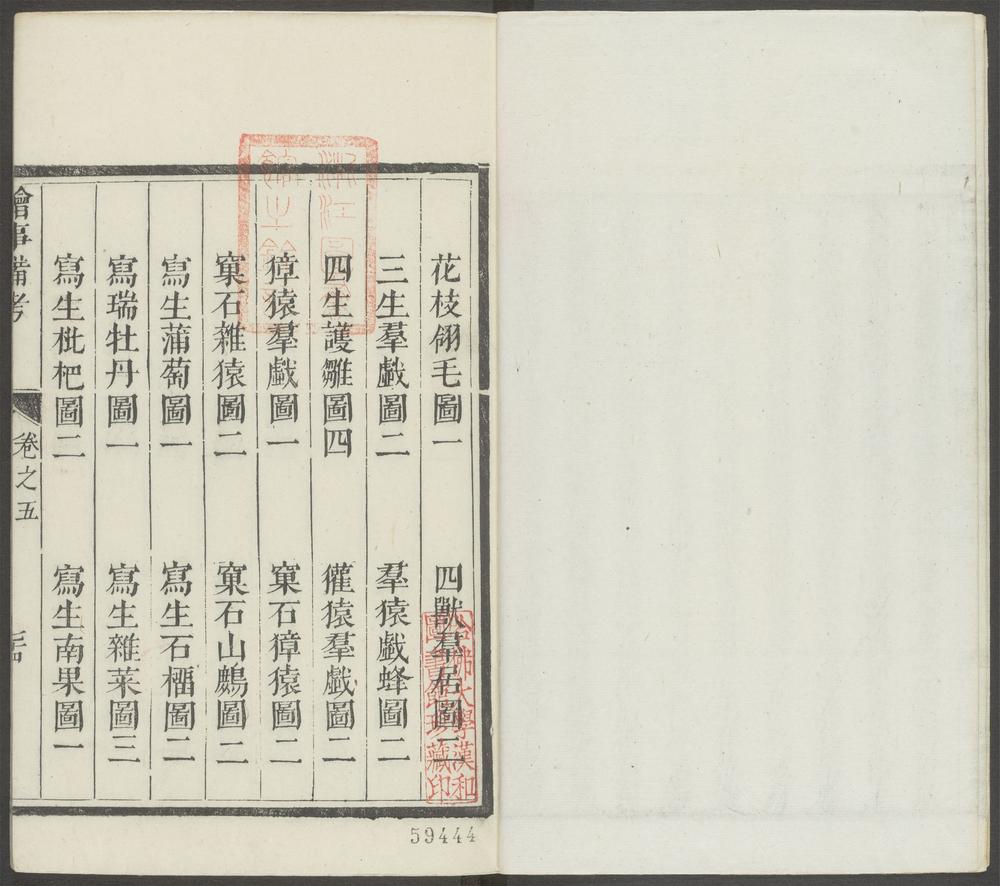 花枝翎毛圖一　四獸羣居圖二
三生羣戲圖二　羣猿戲蜂圖二
四生護雛圖四　獾猿羣戲圖二
獐猿羣戲圖一　窠石獐猿圖二
窠石雜猿圖二　窠石山鷓圖二
寫生蒲萄圖一　寫生石橊圖二
寫瑞牡丹圖一　寫生雜菜圖三
寫生枇杷圖二　寫生南果圖一
繪事備考　卷之五
浙江圖
哈佛大學漢和
圖書館珍藏印
59444